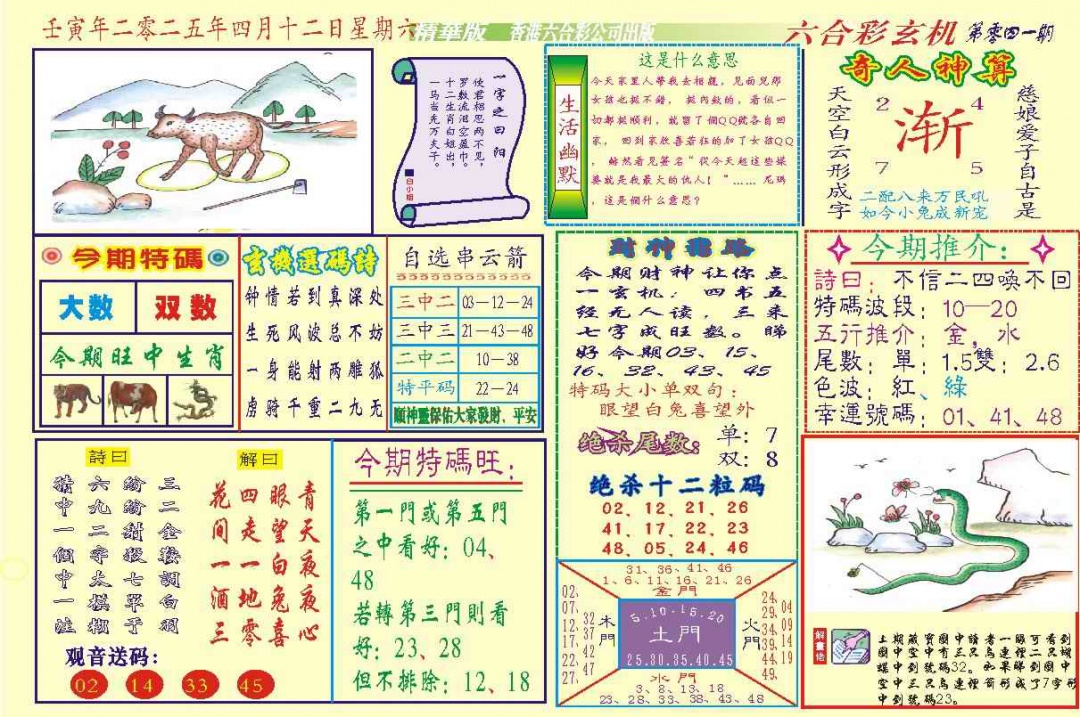 壬寅年二零二五年四月十二日星期六
精華版
香港六合彩公司出版
六合彩玄机
第零四一期
一字之曰：阳
使君相思两不见，
罗数流泪空盈巾。
十二生肖白姐出，
一马当先万夫子。
白小姐
生活幽默
这是什么意思
今天家里人带我去相親，见面见那
女孩也挺不錯，挺內敛的，看似一
切都挺顺利，就留了個QQ號各自回
家，回到家欣喜若狂的加了女孩QQ
，赫然看见签名"從今天起这些媒
婆就是我最大的仇人！"……尼瑪
，这是個什么意思？
奇人神算
天空白云形成字
2
4
渐
7
5
慈娘爱子自古是
二配八来万民吼
如今小兔成新宠
今期特碼
大数
双数
今期旺中生肖
玄機選碼詩
钟情若到真深处
生死风波总不妨
一身能射两雕狐
虏骑千重二九无
自选串云箭
三中二
03—12—24
三中三
21—43—48
二中二
10—38
特平码
22—24
順神靈保佑大家發財、平安
今期财神让你点
一玄机：四书五
经无人读，三来
七字成旺数。睇
好今期03、15、
16、32、43、45
特码大小单双句：
眼望白兔喜望外
绝杀尾数：
单：7
双：8
绝杀十二粒码
02、12、21、26
41、17、22、23
48、05、24、46
今期推介：
詩曰：不信二四喚不回
特碼波段：10—20
五行推介：金，水
尾數：單：1.5雙：2.6
色波：紅、綠
幸運號碼：01、41、48
詩曰
三二金
六九二字太模糊
猜中一個中一注
解曰
青天夜夜心
眼望白兔喜
四走一地零
花间一酒三
观音送码：
02
14
33
45
今期特碼旺：
第一門或第五門
之中看好：04、
48
若轉第三門則看
好：23、28
但不排除：12、18
31、36、41、46
1、6、11、16、21、26
金門
02、
07、
12、
17、
22、
27、
32
37
42
47
木門
5.10-15.20
土門
25.30.35.40.45
火門
24、
29、
34、
39、
44、
49、
04
09
14
19
水門
3、8、13、18
23、28、33、38、43、48
解畫佬
上期藏寶圖中請者一眼可看到
圖中空中有三只鸟連裡二只蝴
蝶中到號碼32。如果睇到圖中
空中三只鸟連裡箭形成了7字形
中到號碼23。